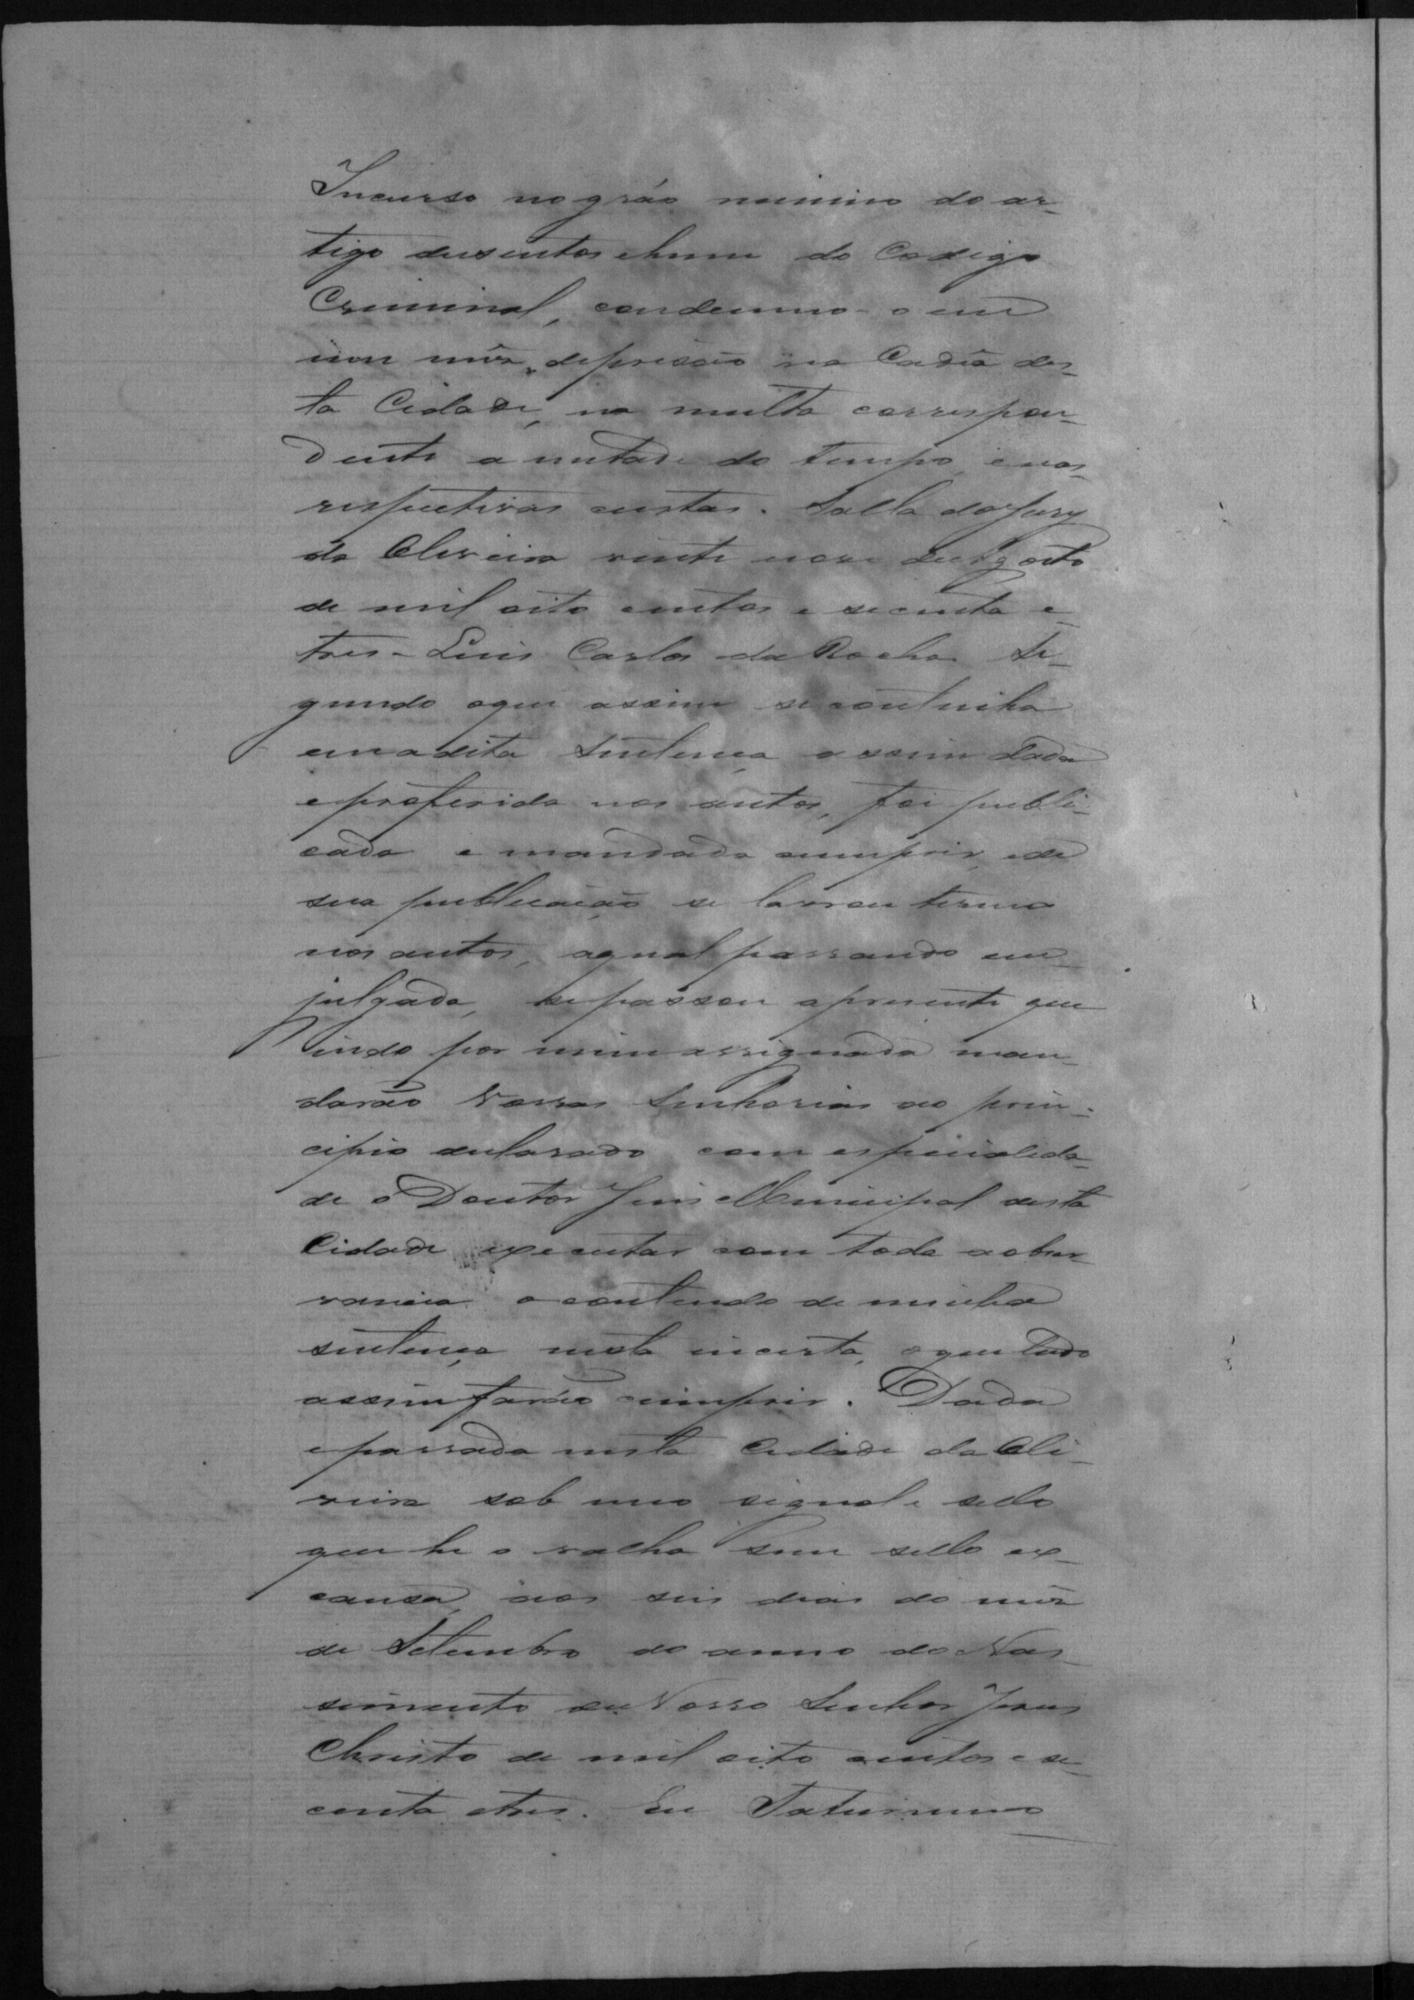 Incurso no gráo minimo do ar-
tigo dusentos e hum do Codigo
Criminal, condemno-o em
um mês de prisão na Cadêa des-
ta Cidade, na multa correspon-
dente a metade do tempo, e nas
respectivas custas. Salla do Jury
da Oliveira vinte nove de Agosto
de mil oito centos e secenta e
tres - Luis Carlos da Rocha. Se-
gundo o que assim se continha
em a dita sentença assim dada
e proferida nos autos, foi publi-
cada e mandada cumprir, e de
sua publicação se lavrou termo
nos autos, a qual passando em
julgado, se passou a presente que
indo por mim assignada man-
darão Vossas Senhorias ao prin-
cipio declarado com especialida-
de o Doutor Juis Municipal desta
Cidade executar com toda a obser-
vancia o contendo de minha
sentença nesta incerta, o que tudo
assim farão cumprir. Dada
e passada nesta Cidade da Oli-
veira sob meu signal e sello
que he o valha sem sello ex-
causa, aos seis dias do mês
de Setembro do anno do Nas-
simento de Nosso Senhor Jesus
Christo de mil oito centos e se-
centa e tres. Eu Saturnino